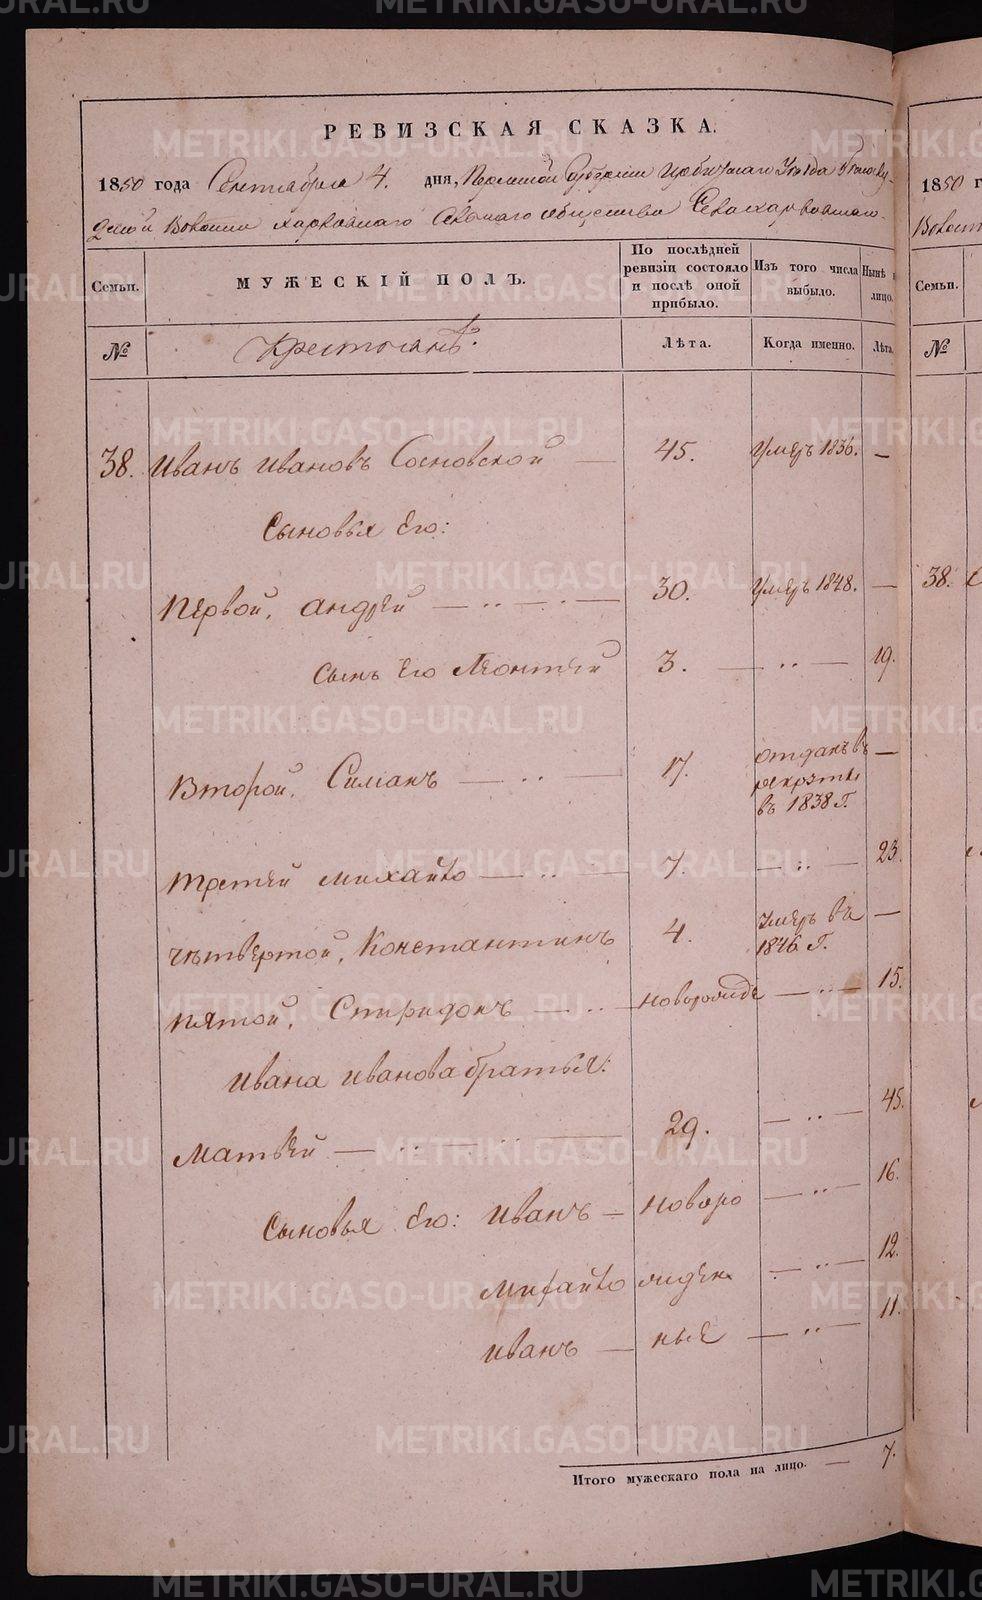 РЕВИЗСКАЯ СКАЗКА.
1850 года Сентября 4. дня, Пермской Губернии Ирбитскаго Уѣзда
Волости Харловскаго Сельскаго общества Села Харловскаго
Семьи. МУЖЕСКІЙ ПОЛЪ. По послѣдней ревизіи состояло и послѣ оной прибыло. Изъ того числа выбыло. Нынѣ на лицо. Семьи.
№ Крестьянъ. Лѣта. Когда именно. Лѣта. №
38. Иванъ Ивановъ Сосновской 45. Умеръ 1836. —
Сыновья Его:
Первой, Андрей — 30. Умеръ 1848. — 38.
Сынъ Его Леонтей 3. — 19.
Второй, Симанъ — 17. отданъ въ рекруты въ 1838 г. —
Третей Михайло — 7. — 23.
Четвертой, Константинъ 4. Умеръ въ 1846 г. —
Пятой, Спиридонъ — новорожде — 15.
Ивана Иванова братья:
Матвей — 29. — 45.
Сыновья Его: Иванъ — новоро — 16.
Михайло жден — 12.
Иванъ — ные — 11.
Итого мужескаго пола на лицо. — 7.
1850
METRIKI.GASO-URAL.RU